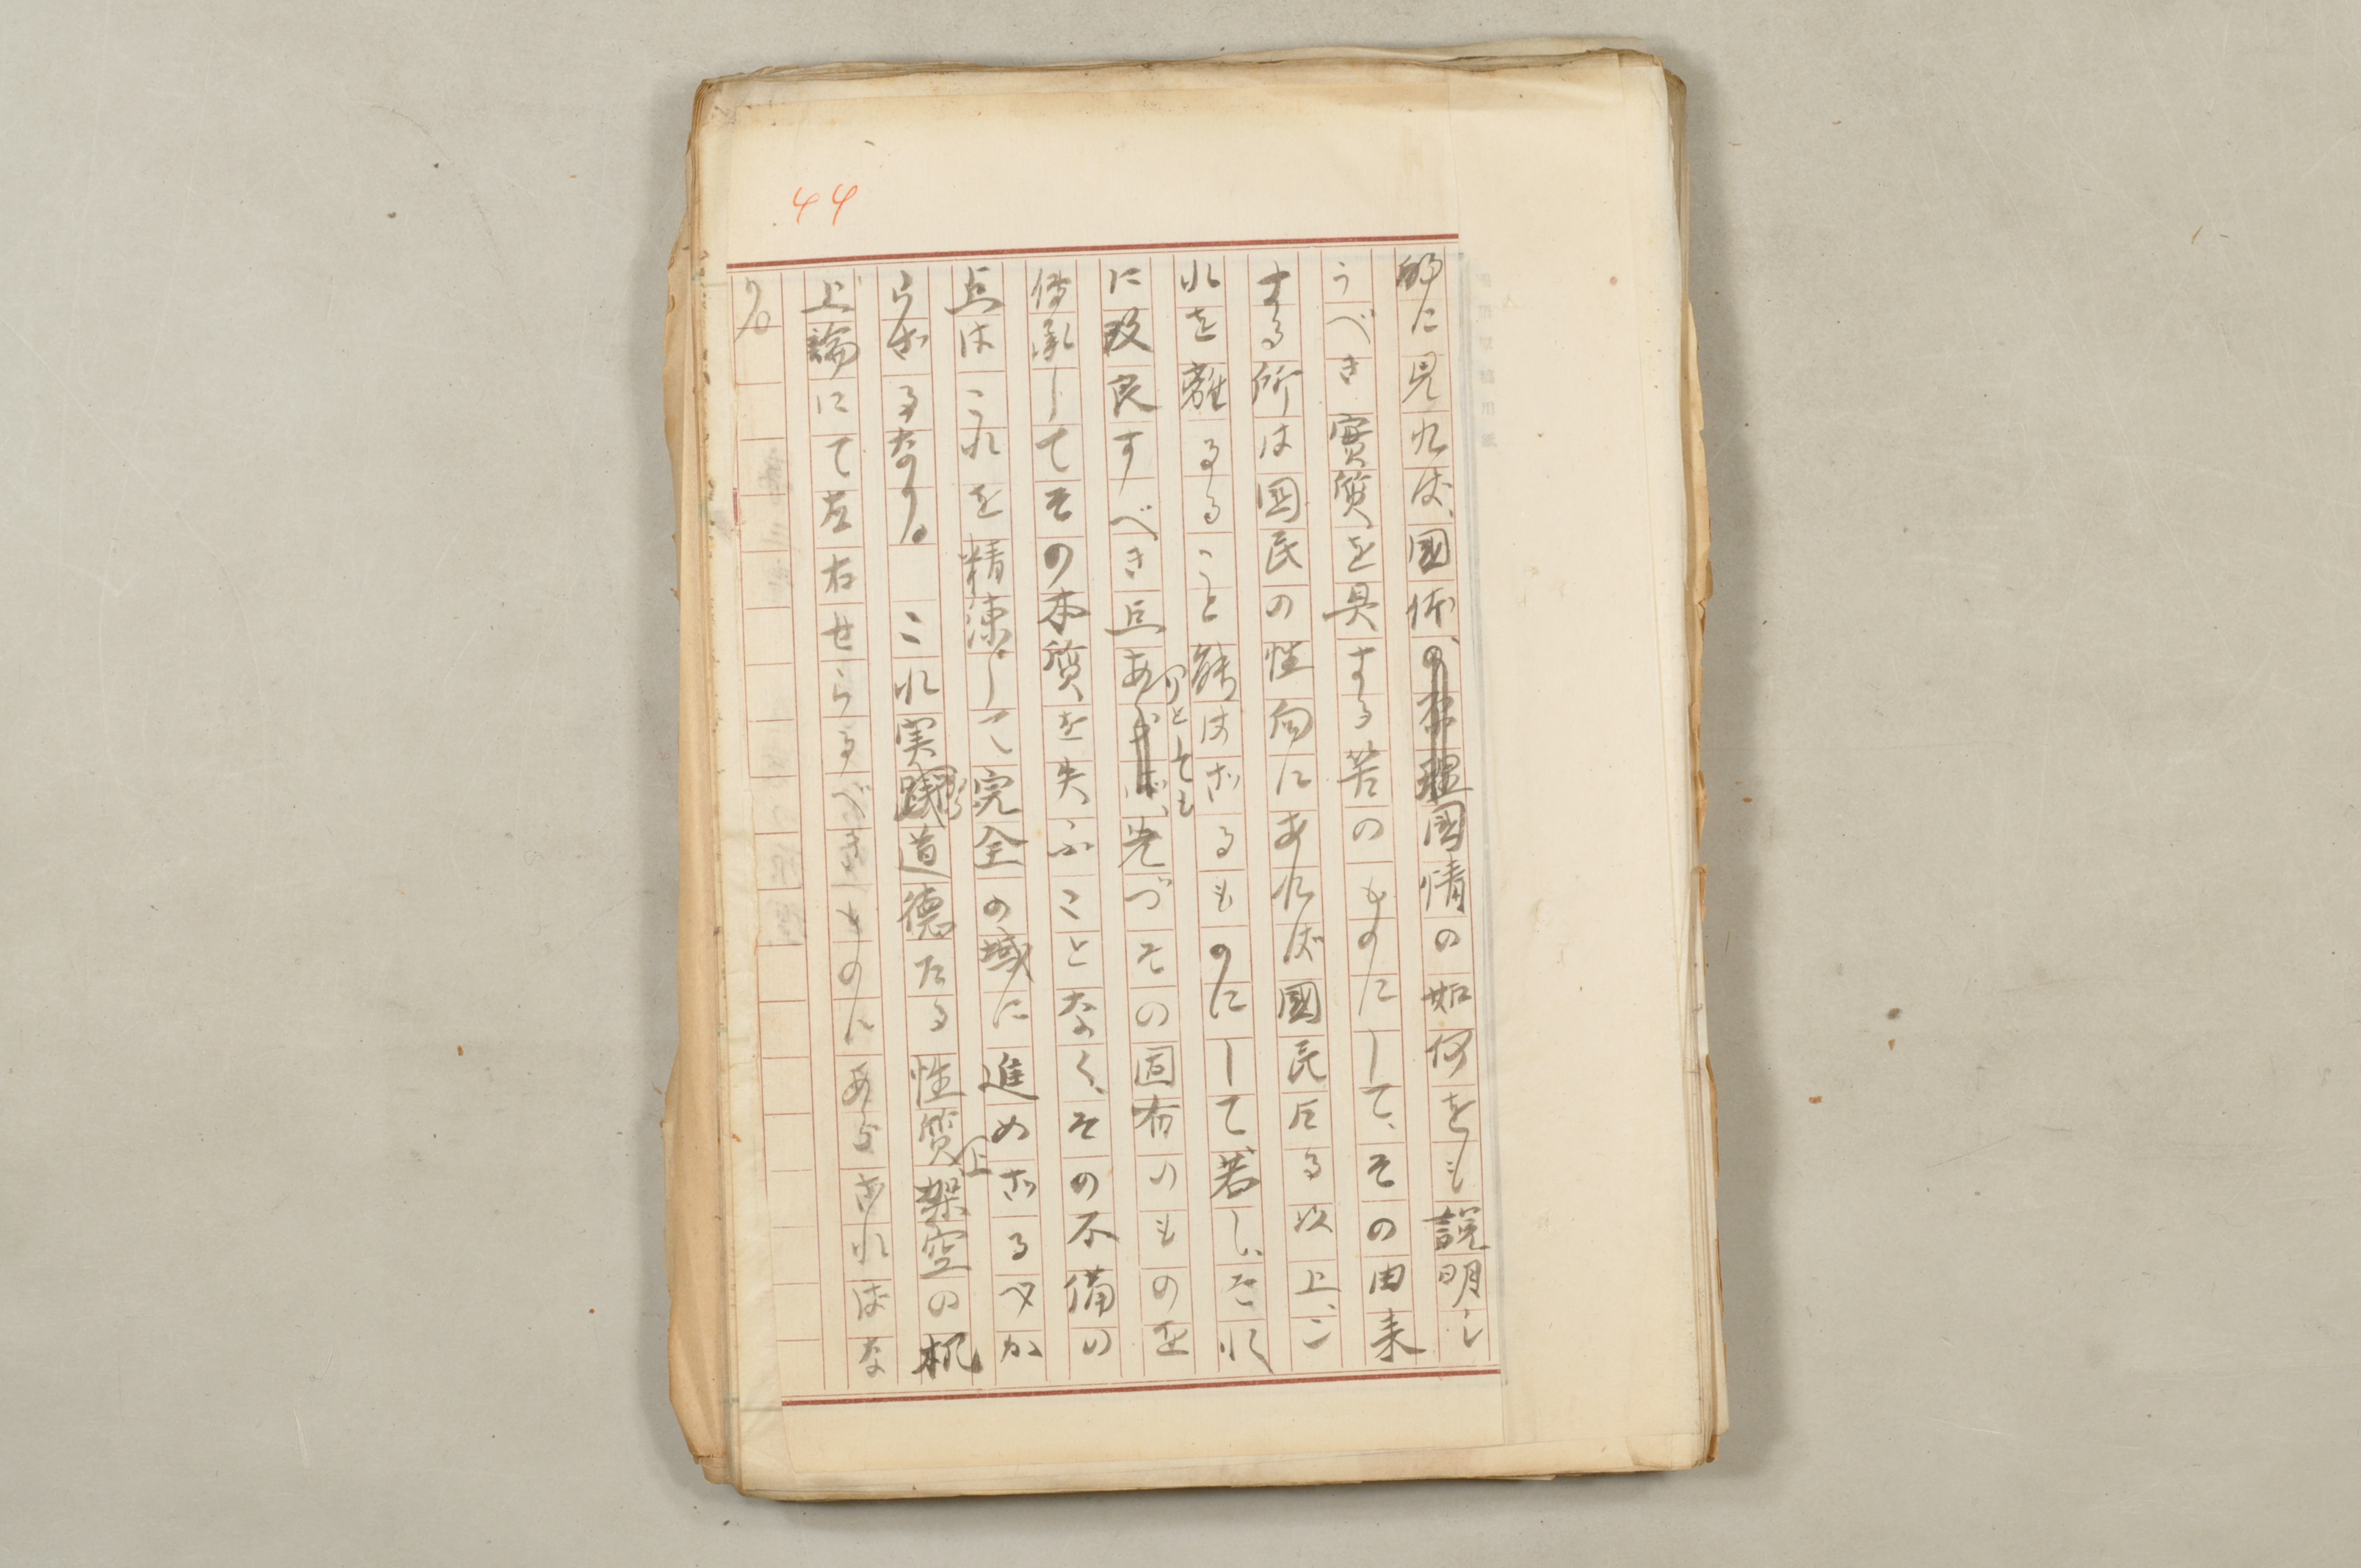 44
的に見れば、国体、国情の如何をも説明し
うべき實質を具する筈のものにして、その由来
する所は国民の性向にあれば國民たる以上、こ
れを離るること能はざるものにして、若し、それ
に改良すべき点ありとしても、先づその固有のものを
傳承してその本質を失ふことなく、その不備の
点はこれを精凍して完全の域に進めざるべか
らざるなり。 これ実践道徳たる性質上架空の机
上論にて左右せらるべきものにあらざればな
り。